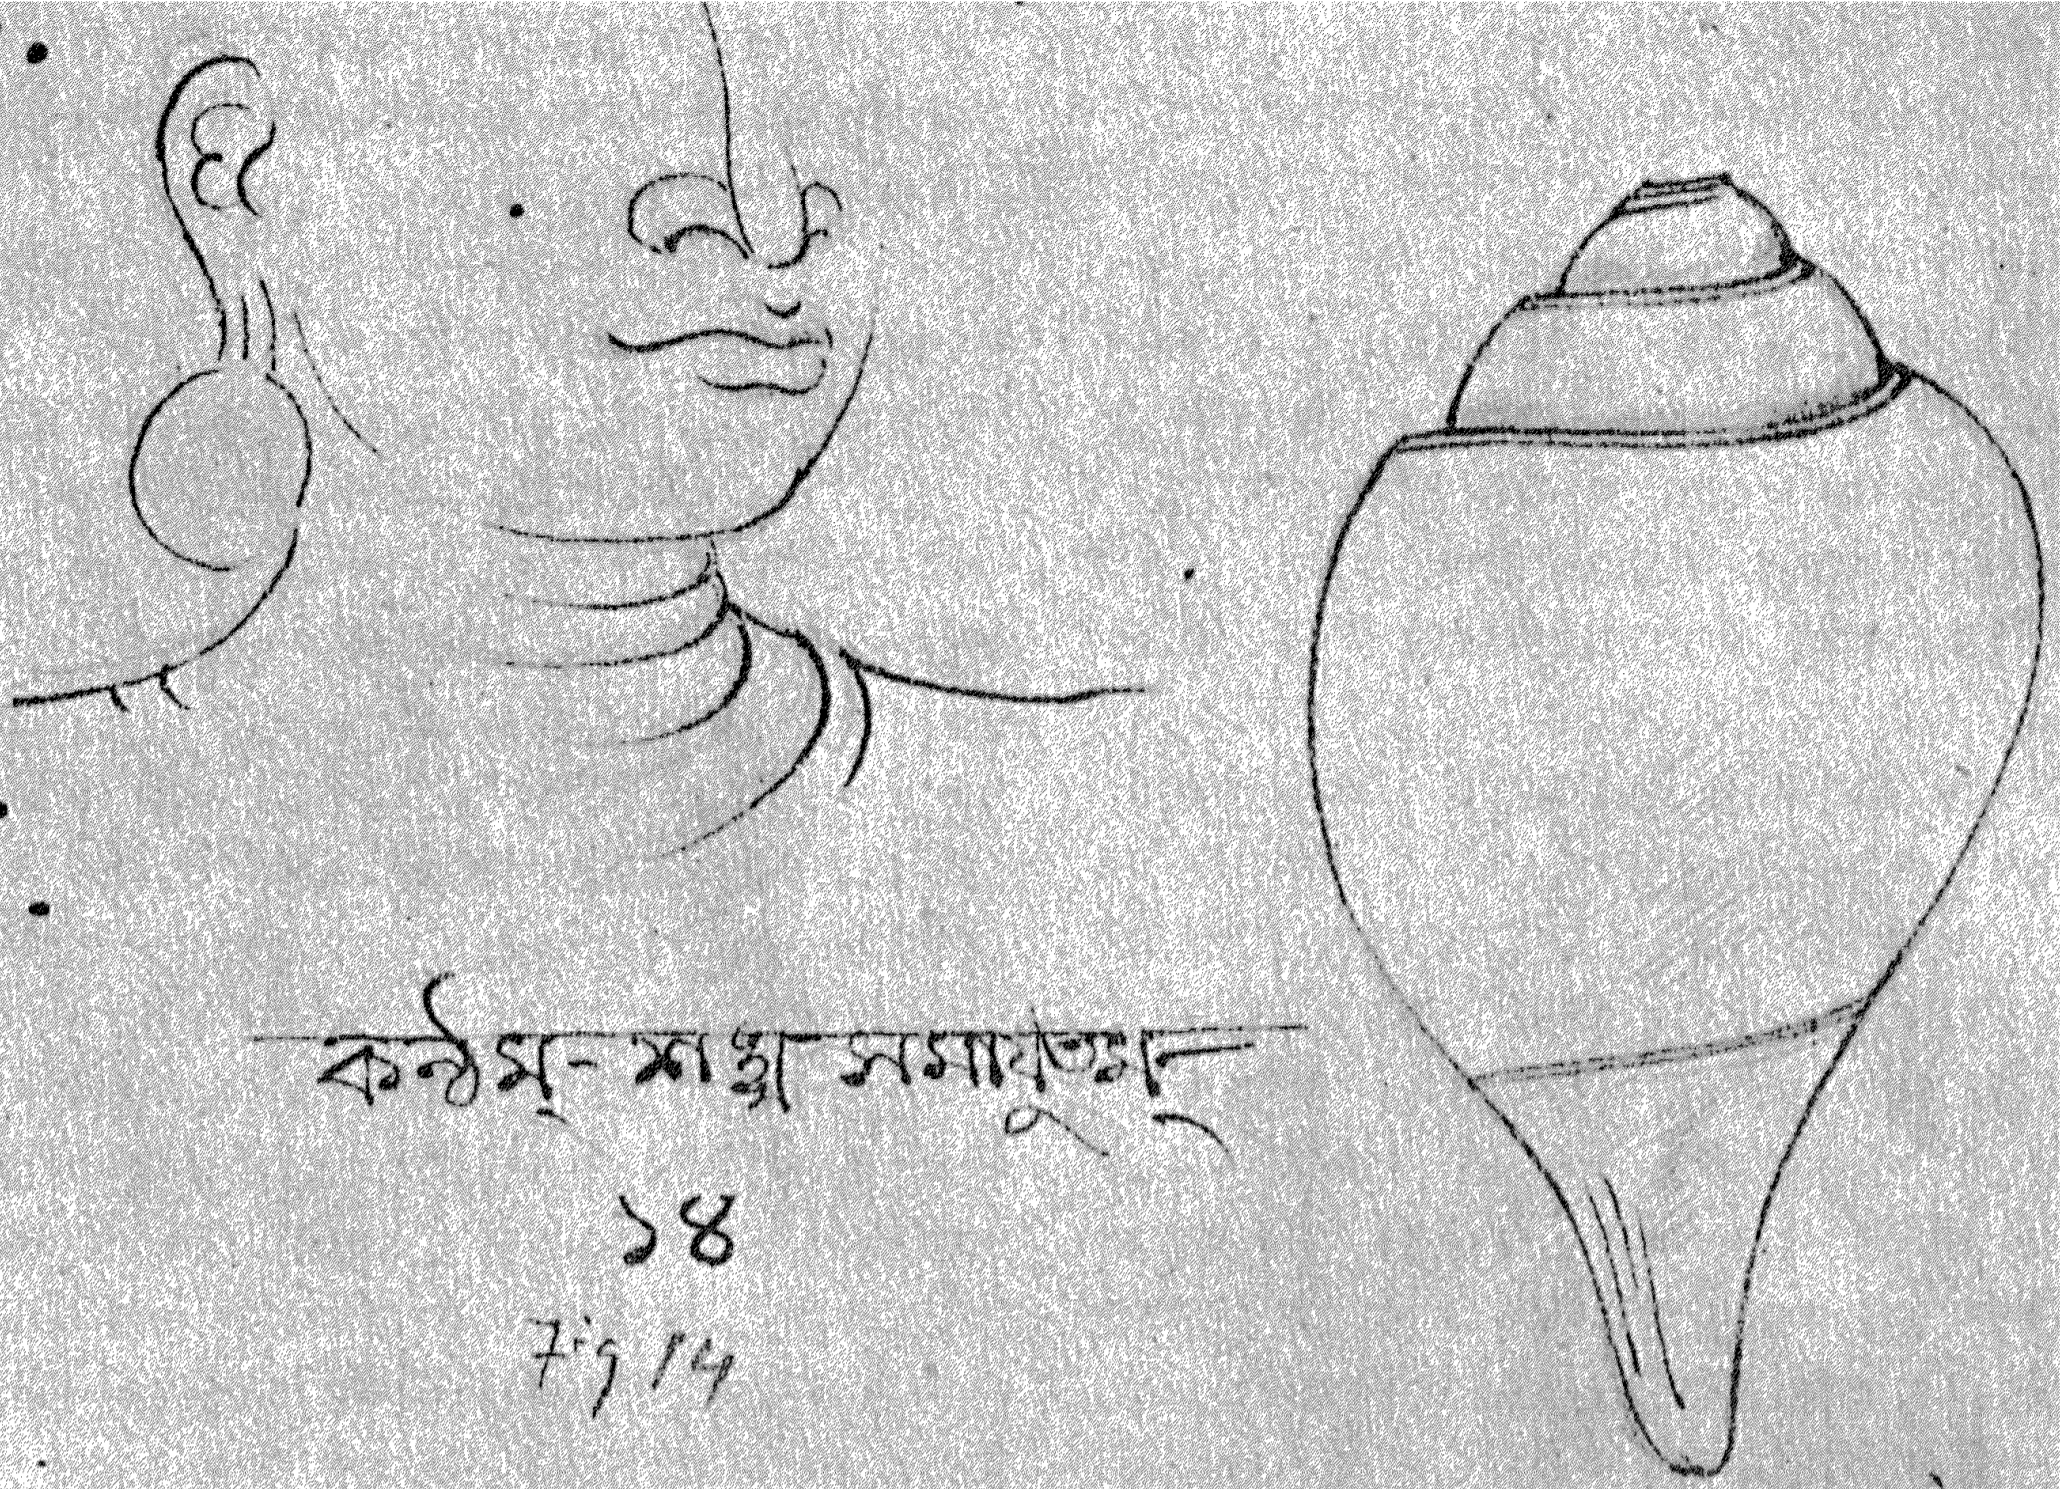 কণ্ঠম্-শঙ্খ-সমাযুতম্
১৪
Fig 14